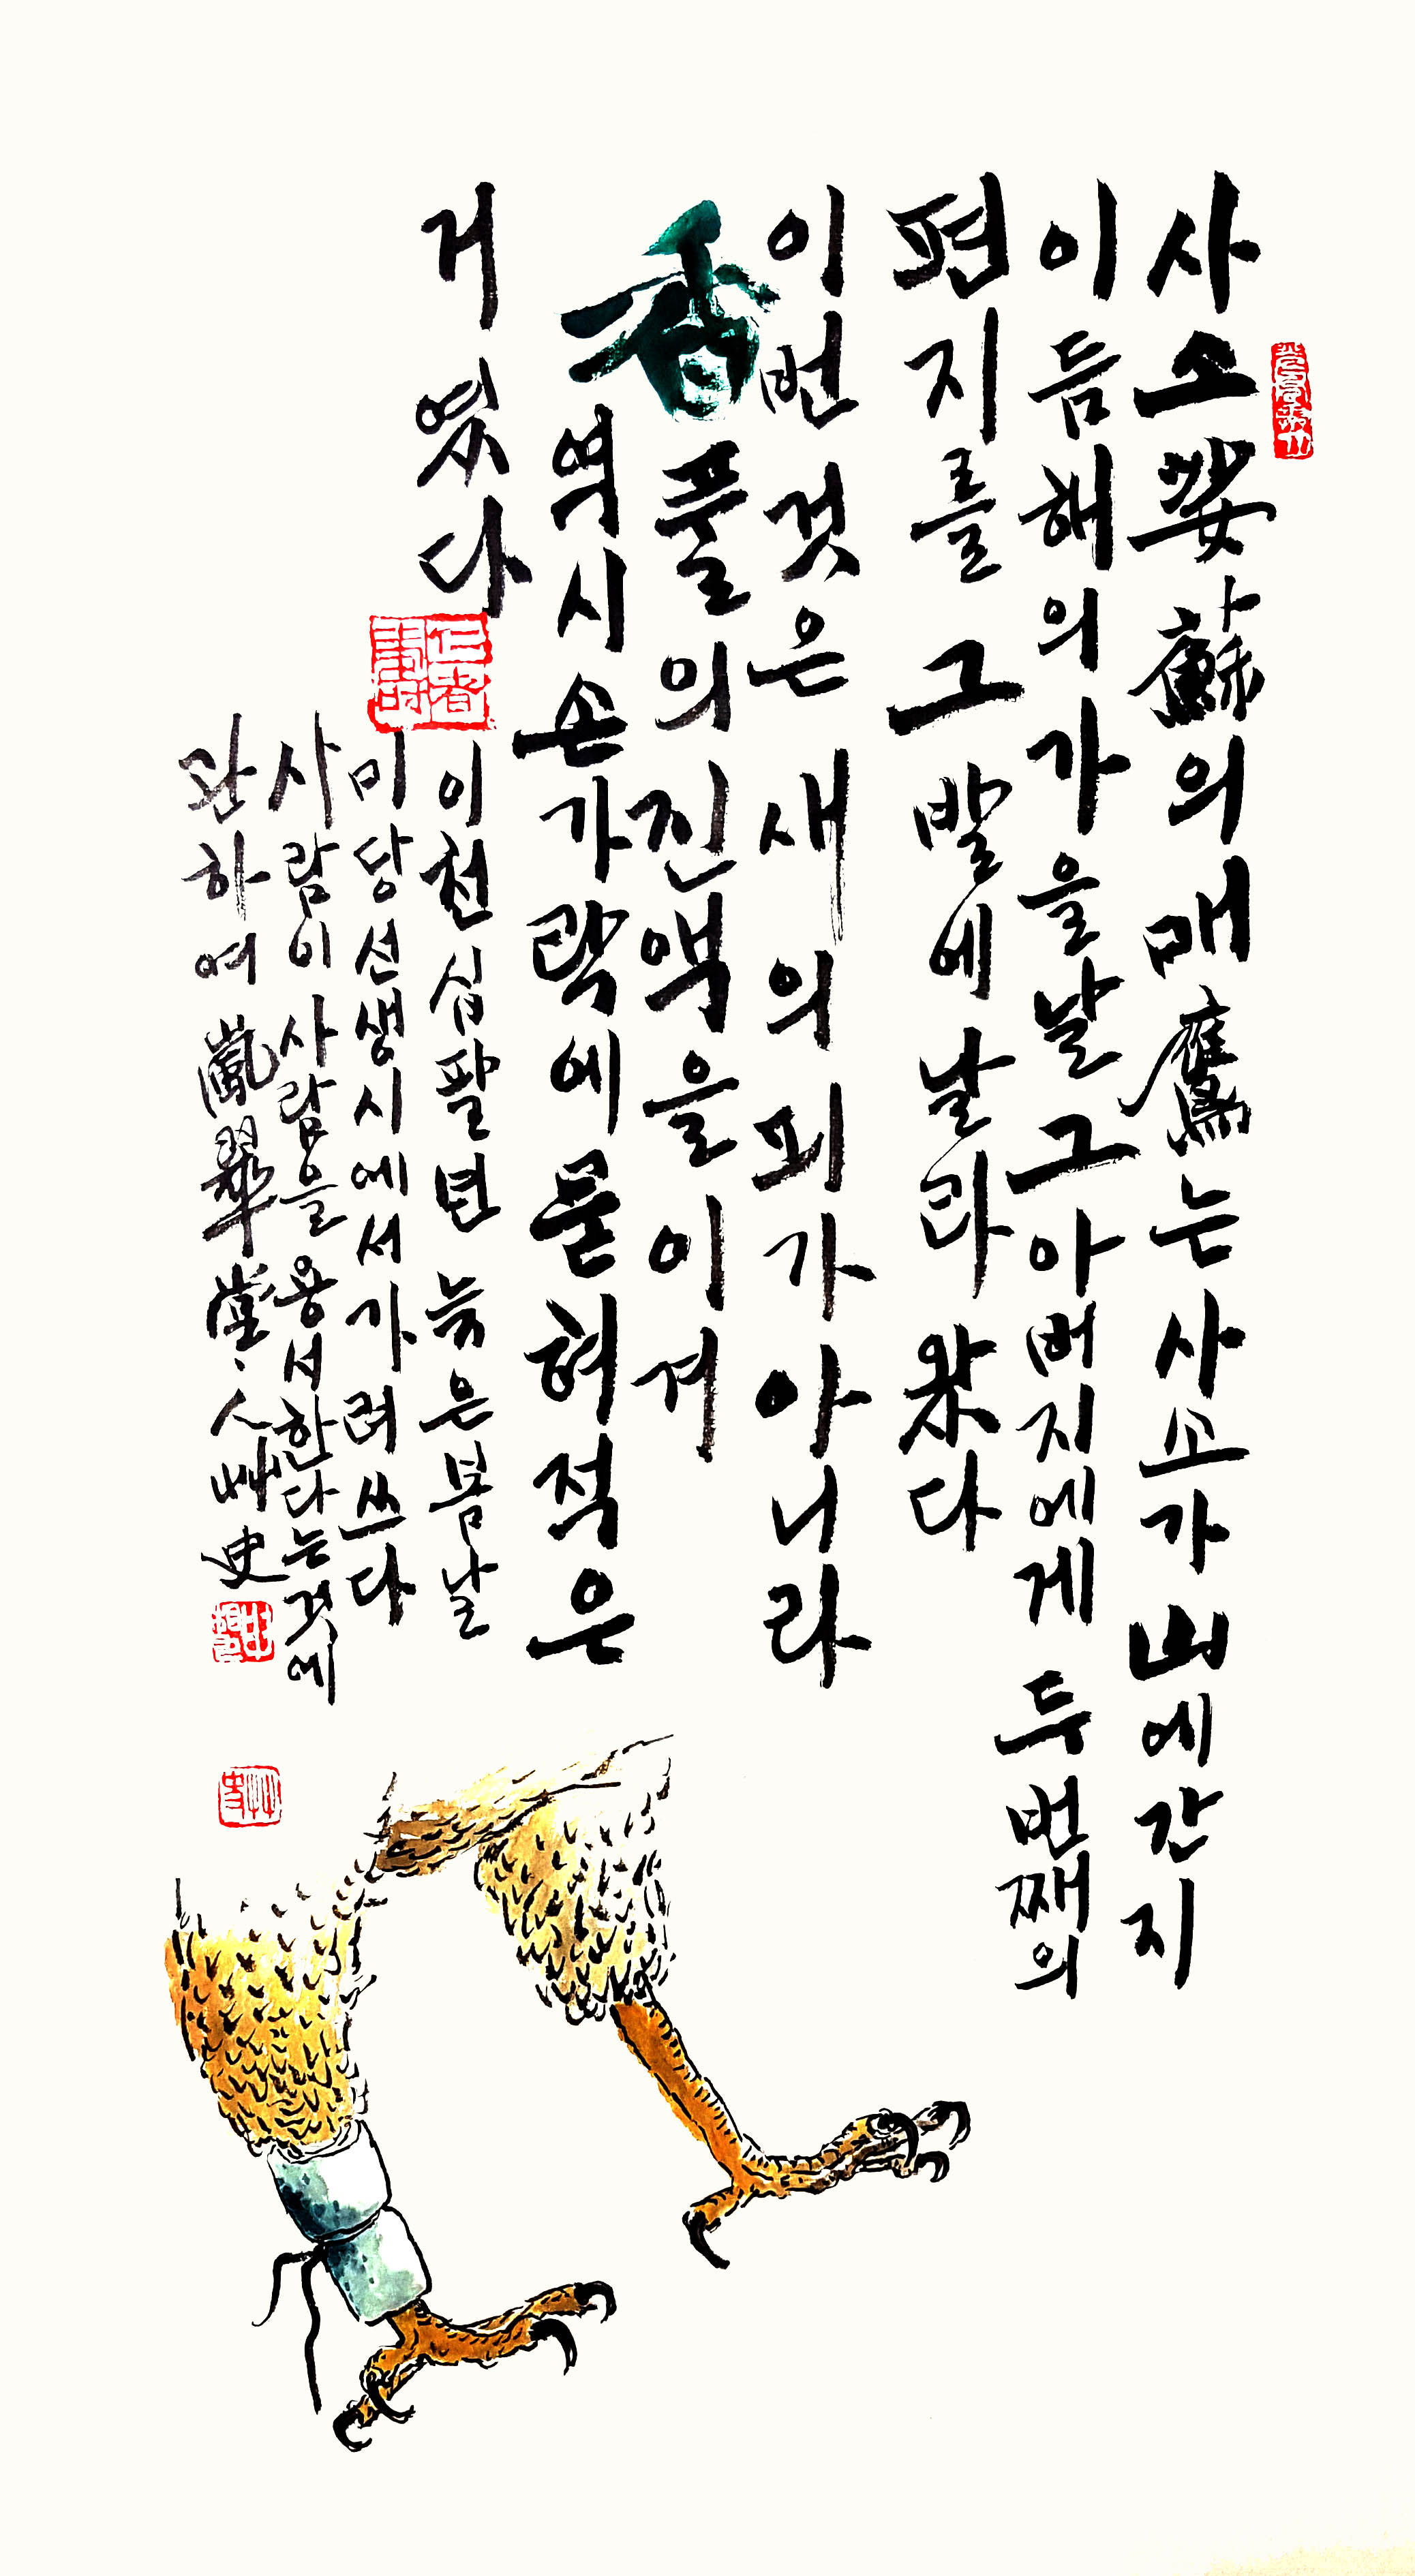 사소娑蘇의 매鷹는 사소가 山에 간지
이듬해의 가을날 그 아버지에게 두번째의
편지를 그 발에 날라왔다
이번 것은 새의 피가 아니라
香풀의 진액을 이겨
역시 손가락에 묻혀 적은
거였다
이천십팔년 늙은 봄날
미당 선생 시에서 가려쓰다
사람이 사람을 용서한다는 것에
관하여 嵐翠堂 人 艸史
仁者壽